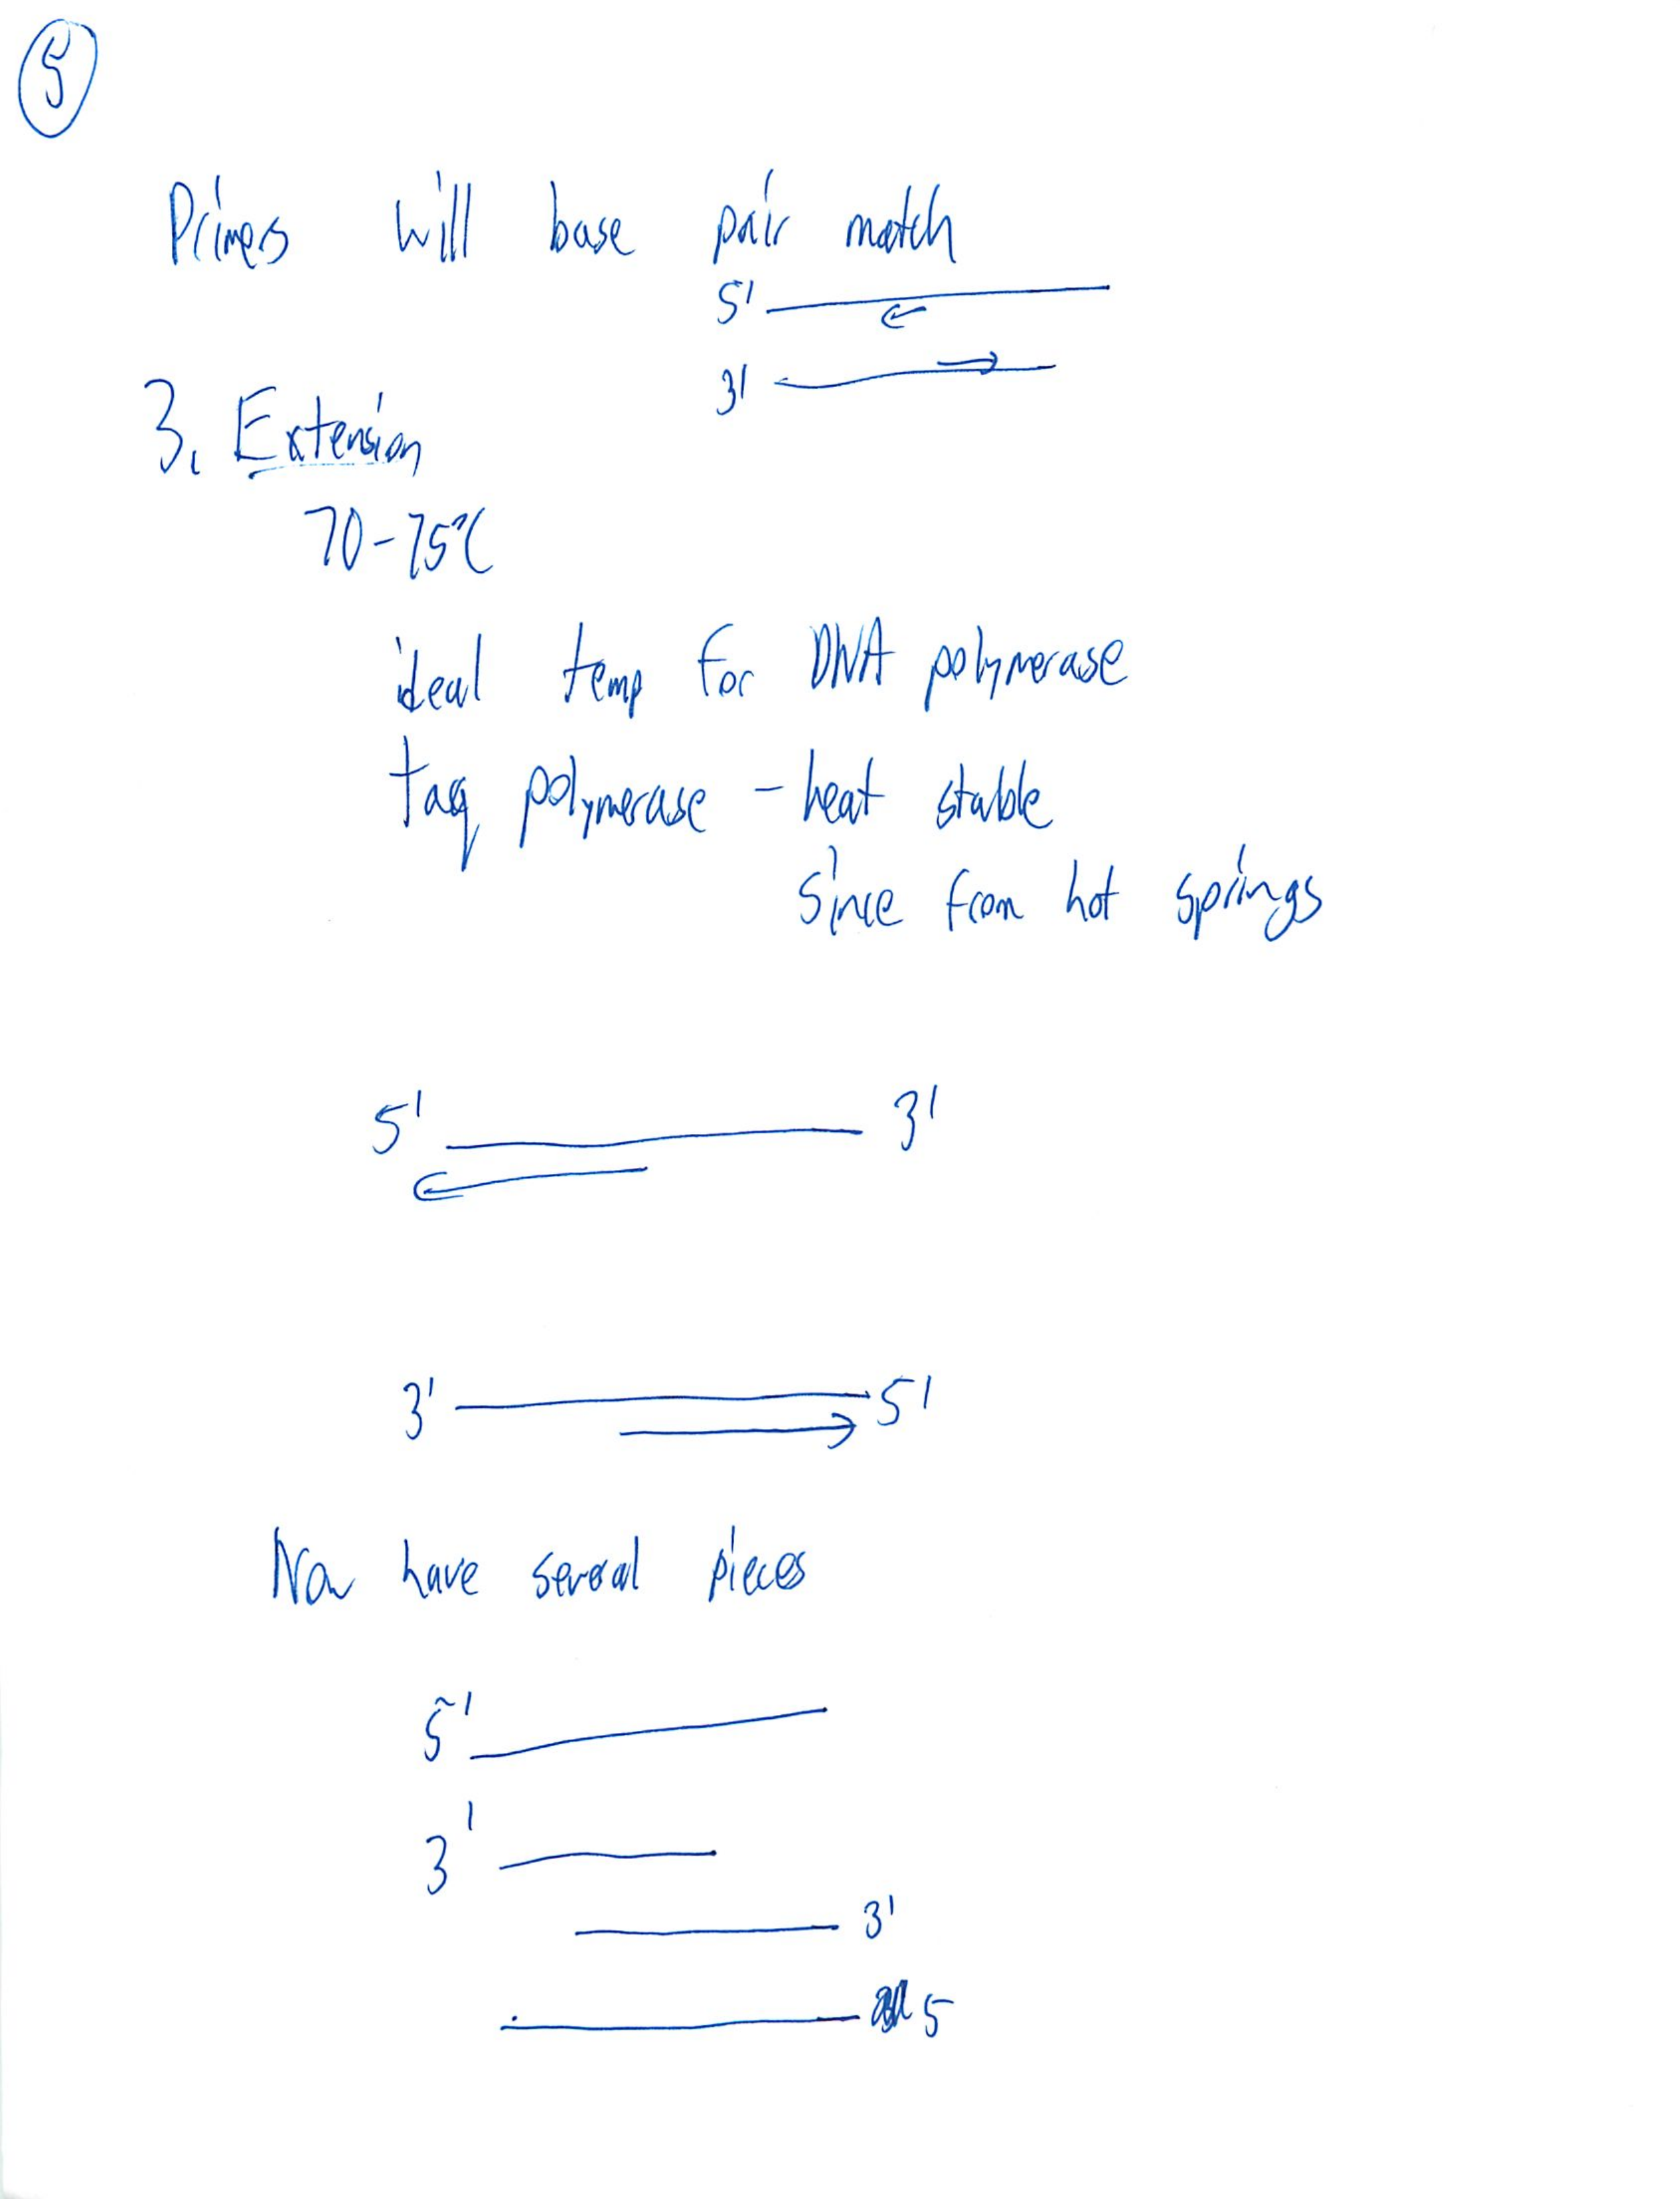 5
Primers will base pair match
5'
3'
3. Extension
70-75°C
ideal temp for DNA polymerase
taq polymerase - heat stable
since from hot springs
5' 3'
3' 5'
Now have several pieces
5'
3'
3'
5